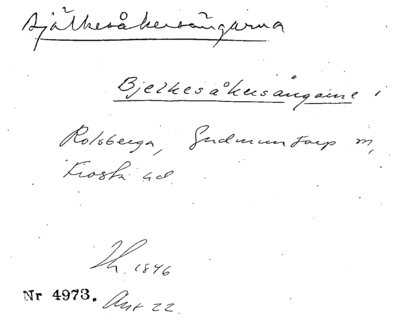 Bjälkesåkersängarna
Bjelkesåkersängarne i
Rolsberga, Gudmuntorp m,
Frosta hd.
1846
Nr 4973. Ant 22.